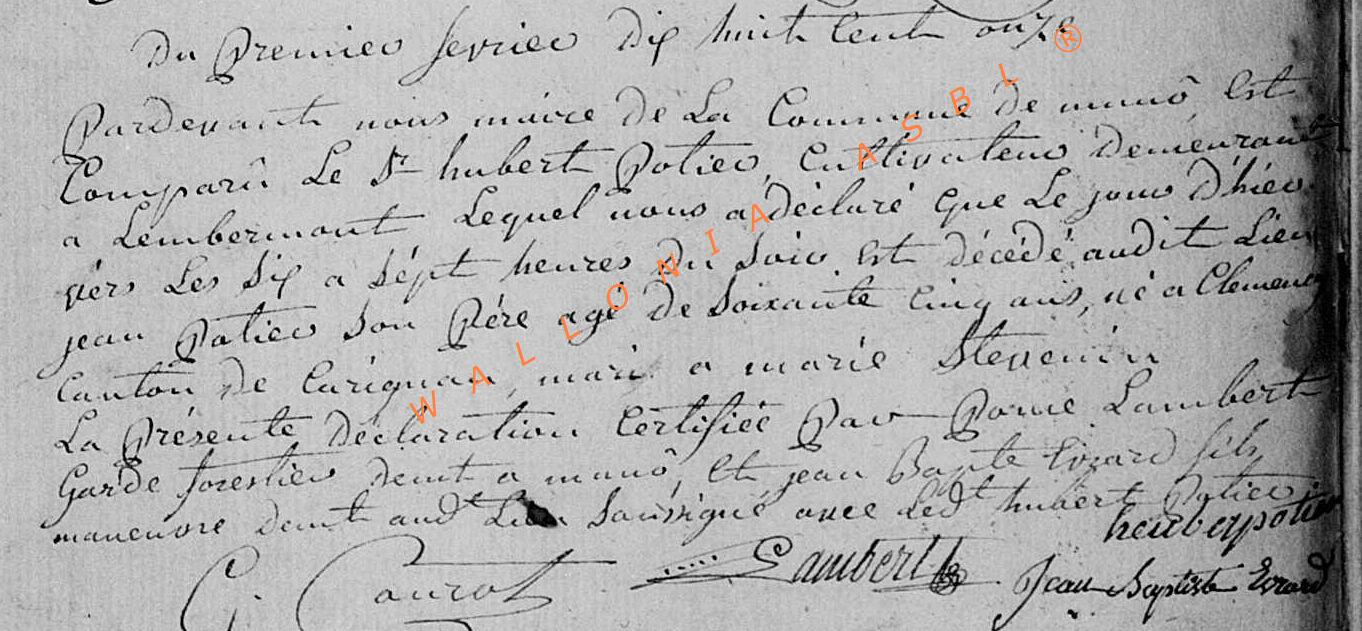 Du Premier fevrier dix huit Cent onze
Pardevant nous maire de La Commune de munô Est
Comparû Le Sr hubert Potier, Cultivateur demeurant
a Lembermont Lequel nous a déclaré que Le jour d'hier
vérs Les Six a Sépt heures du Soir Est décédé audit Lieu
jean Potier Son Pére agé de Soixante Cinq ans, né a Clemency
Canton de Carignan, mari a marie Stevenin
La Présente déclaration Certifiée Par Lambert
Garde forestier demt a munô, Et jean Bapte Evrard fils
maneuvre demt audt Lieu Soussigné avec Ledt hubert Potier
heuberpotier
Lambert
Jean Baptiste Evrard
WALLONIA ASBL ®